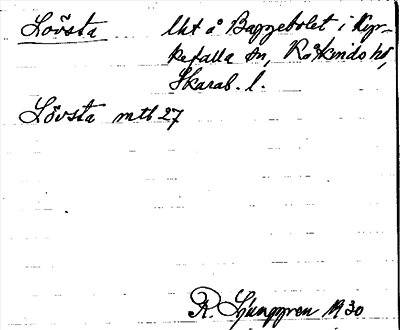 Lövsta lht å Baggebolet i Kyr-
kefalla sn, Kåkinds hd,
Skarab. l.
Lövsta mtb 27
R. Ljunggren 1930